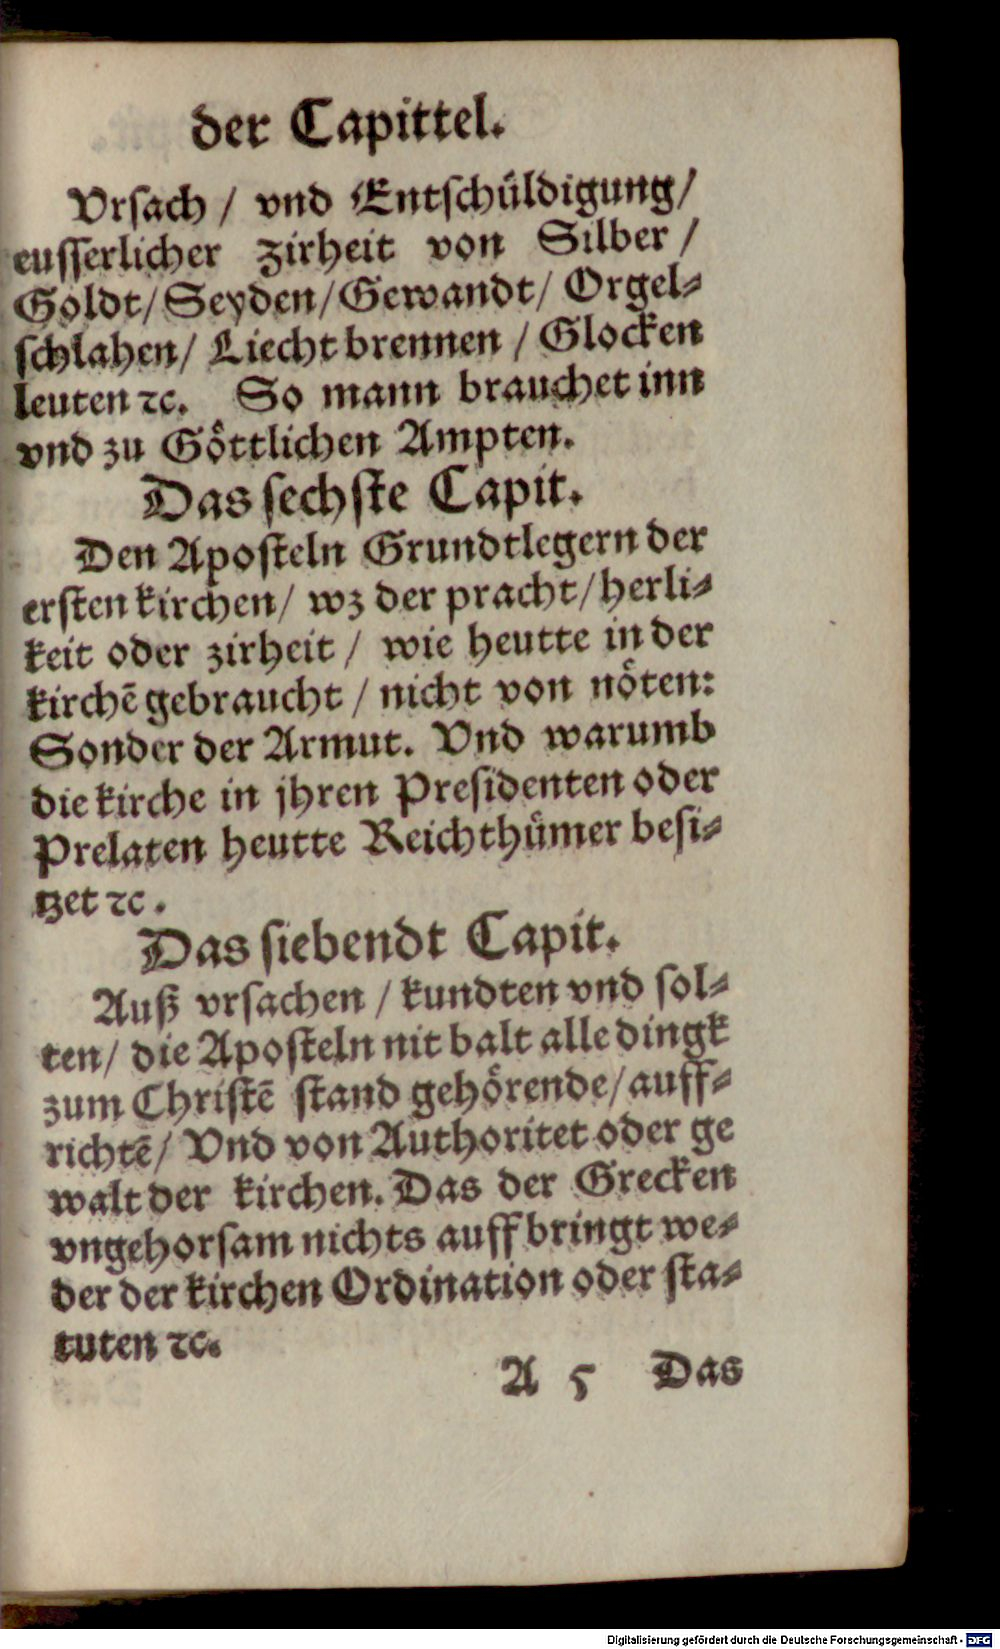 der Capittel.
Vrsach / vnd Entschüldigung/
eusserlicher zirheit von Silber /
Goldt/ Seyden/ Gewandt/ Orgel-
schlahen/ Liecht brennen / Glocken
leuten ꝛc. So mann brauchet inn
vnd zu Göttlichen Ampten.
Das sechste Capit.
Den Aposteln Grundtlegern der
ersten kirchen/ wz der pracht/ herli-
keit oder zirheit / wie heutte in der
kirchē gebraucht / nicht von nöten:
Sonder der Armut. Vnd warumb
die kirche in jhren Presidenten oder
Prelaten heutte Reichthümer besi-
tzet ꝛc.
Das siebendt Capit.
Auß vrsachen / kundten vnd sol-
ten/ die Aposteln nit balt alle dingk
zum Christē stand gehörende/ auff-
richtē/ Vnd von Authoritet oder ge
walt der kirchen. Das der Grecken
vngehorsam nichts auff bringt we-
der der kirchen Ordination oder sta-
tuten ꝛc.
A 5 Das
Digitalisierung gefördert durch die Deutsche Forschungsgemeinschaft - DFG